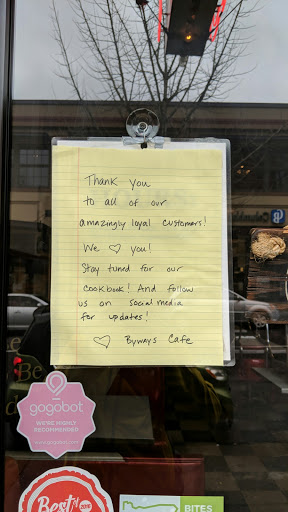 Thank you
to all of our
amazingly loyal customers!
We ♡ you!
Stay tuned for our
cookbook! And follow
us on social media
for updates!
♡ Byways Cafe
gogobot
WE'RE HIGHLY
RECOMMENDED
www.gogobot.com
Best
BITES